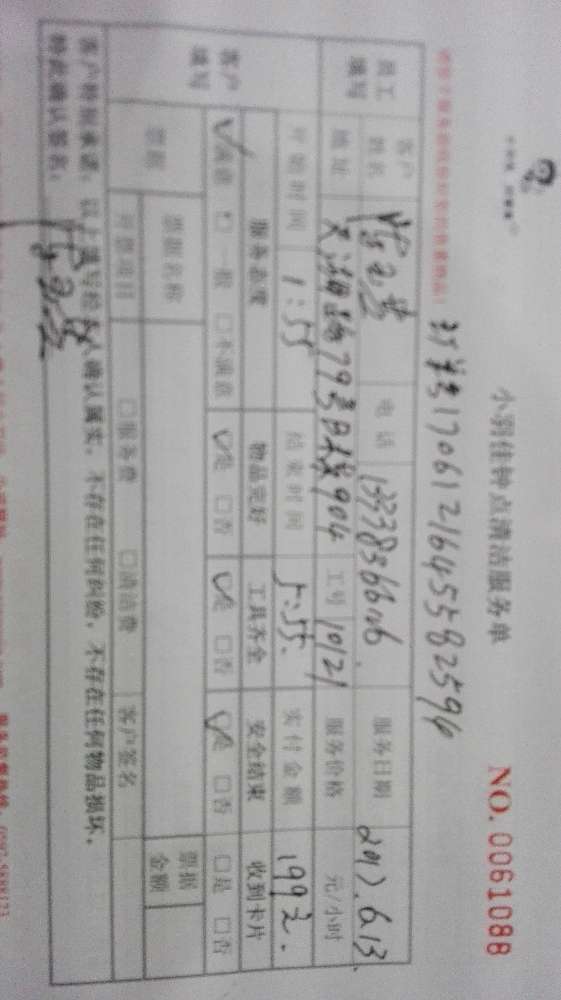 小羽佳钟点清洁服务单
NO. 0061088
订单号17061216455582594
员工填写 客户姓名 电话 服务日期 2017.6.13.
地址 天湖路79号B楼904 工号 10121 服务价格 元/小时
开始时间 1:55 结束时间 5:55. 实付金额 199元.
客户填写 服务态度 物品完好 工具齐全 安全结束 收到卡片
☑满意 □一般 □不满意 ☑是 □否 ☑是 □否 ☑是 □否 □是 □否
票据 票据名称 票据金额
开票项目 □服务费 □清洁费 客户签名
客户特别承诺：以上填写经本人确认属实，不存在任何纠纷，不存在任何物品损坏，
特此确认签名：